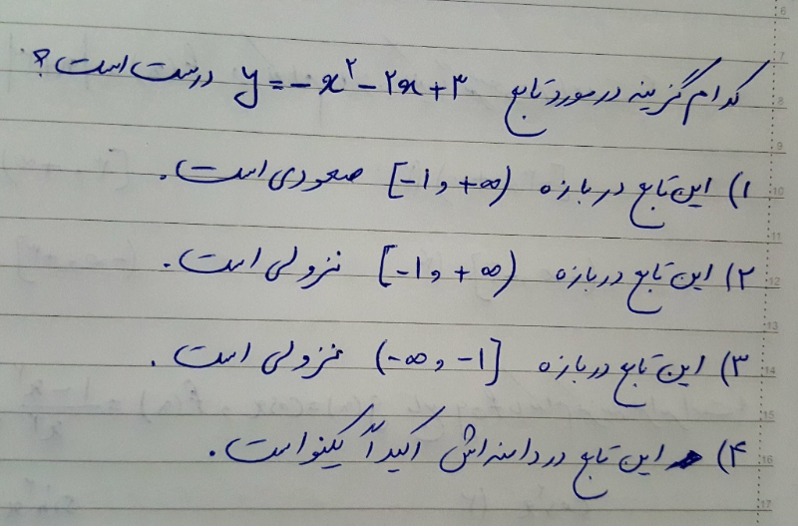 کدام گزینه در مورد تابع y = -x² - ۲x + ۳ درست است؟
۱) این تابع در بازه [-۱, +∞) صعودی است.
۲) این تابع در بازه [-۱, +∞) نزولی است.
۳) این تابع در بازه (-∞, -۱] نزولی است.
۴) این تابع در دامنه‌اش اکیداً یکنواست.